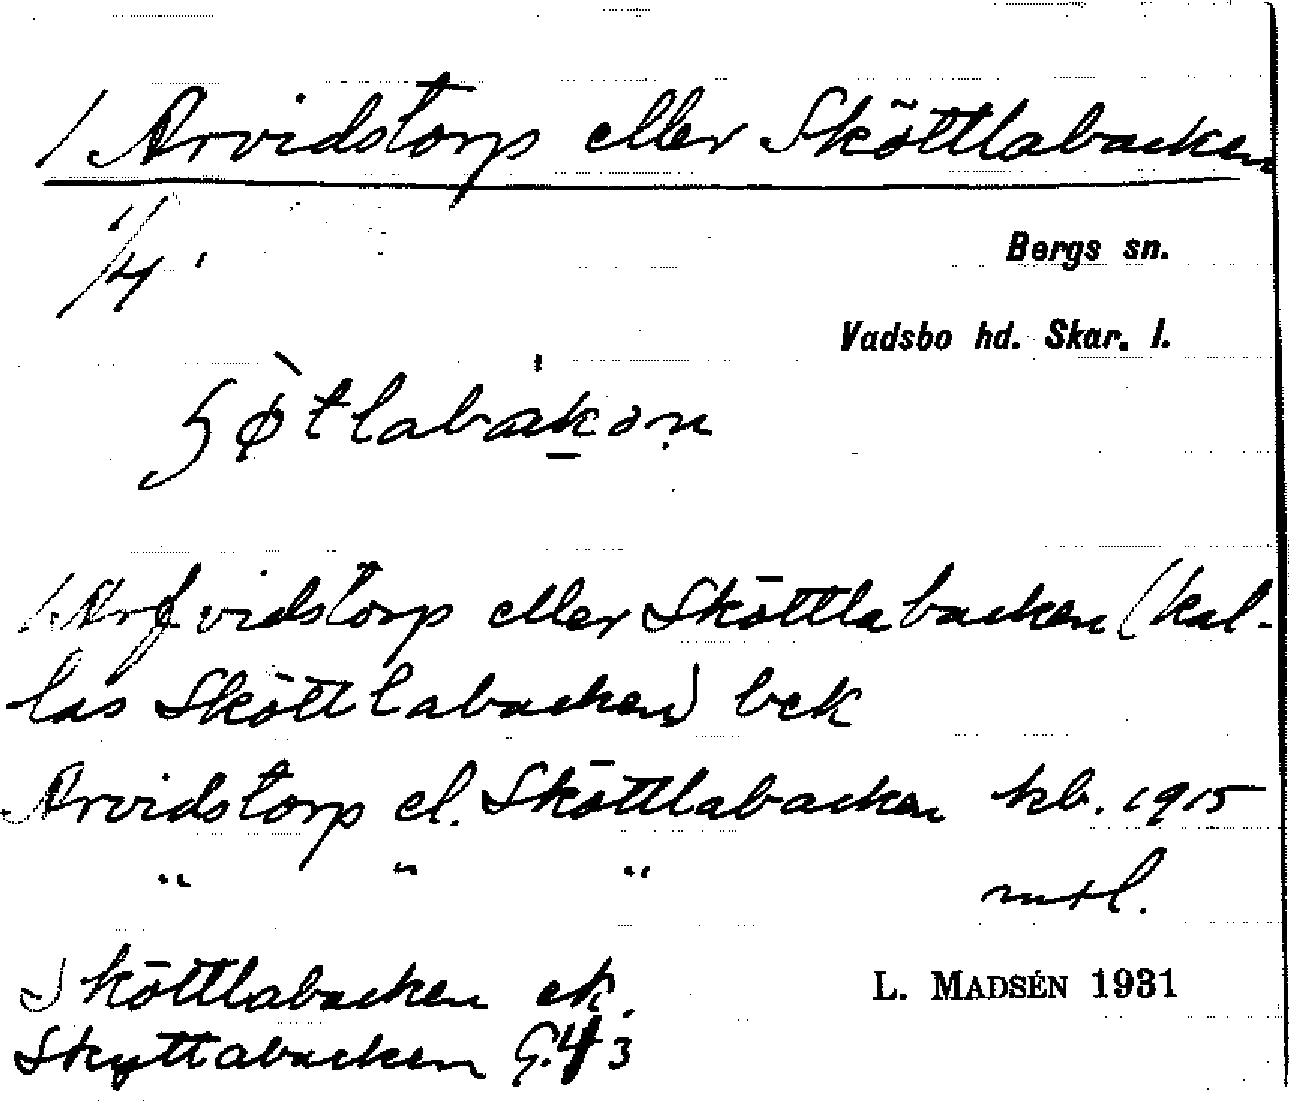 1 Arvidstorp eller Sköttlabacken
1/4
Bergs sn.
Vadsbo hd. Skar. l.
ʃø̀tlabakən
1 Arfvidstorp eller Sköttlabacken (kal-
las Sköttlabacken) bek
Arvidstorp el. Sköttlabacken kb. 1915
" " " mtl.
Sköttlabacken ek.
L. MADSÉN 1931
Skyttabacken G. 43